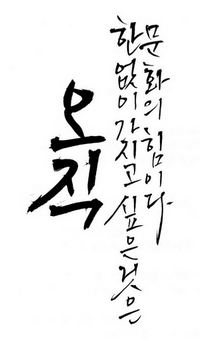 오직
한없이 가지고 싶은 것은
문화의 힘이다.